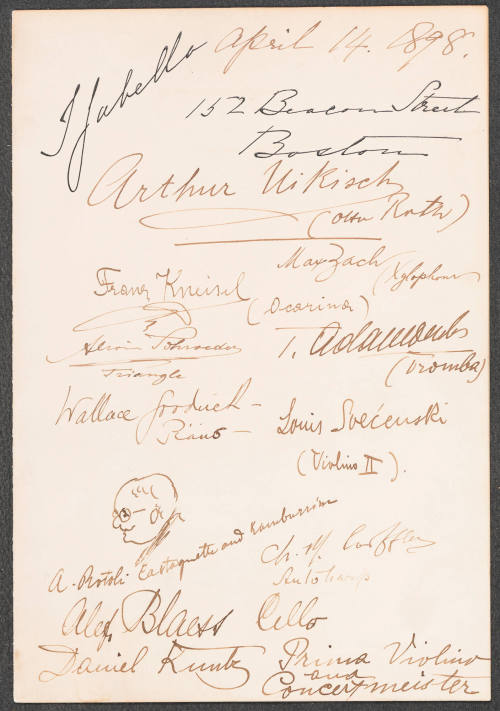 Isabella April 14. 1898.
152 Beacon Street
Boston
Arthur Nikisch
(Otto Roth)
Max Zach
(Xylophone)
Franz Kneisel
(Ocarina)
Alwin Schroeder
Triangle
T. Adamowski
(Tromba)
Wallace Goodrich –
Piano –
Louis Svećenski
(Violino II).
A. Rotoli Castagnette and tambourine
Ch. M. Loeffler
Autoharp
Alex Blaess Cello
Daniel Kuntz Prima Violino
and
Concertmeister